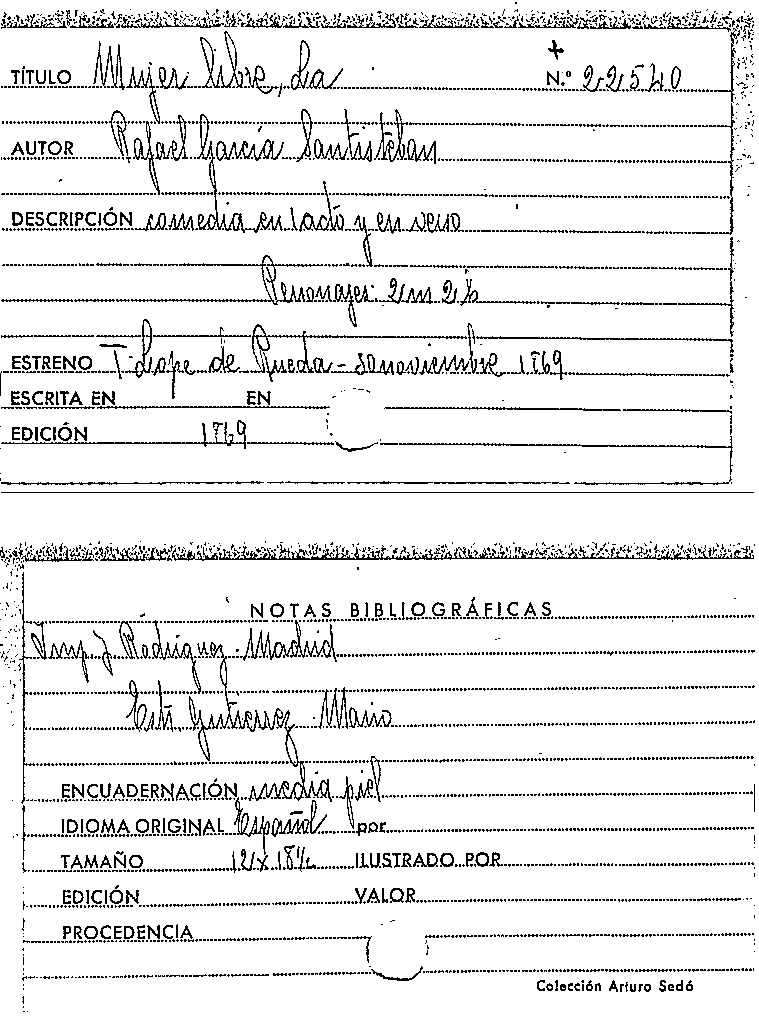 TÍTULO Mujer libre, La N.º 22540
AUTOR Rafael García Santisteban
DESCRIPCIÓN comedia en 1 acto y en verso
Personajes: 2 m 2 h
ESTRENO T. Lope de Rueda - 30 noviembre 1869
ESCRITA EN EN
EDICIÓN 1869
NOTAS BIBLIOGRÁFICAS
Imp. J. Rodríguez. Madrid
Gutierrez. Mario
ENCUADERNACIÓN media piel
IDIOMA ORIGINAL Español por
TAMAÑO 12 x 18½ ILUSTRADO POR
EDICIÓN VALOR
PROCEDENCIA
Colección Arturo Sedó